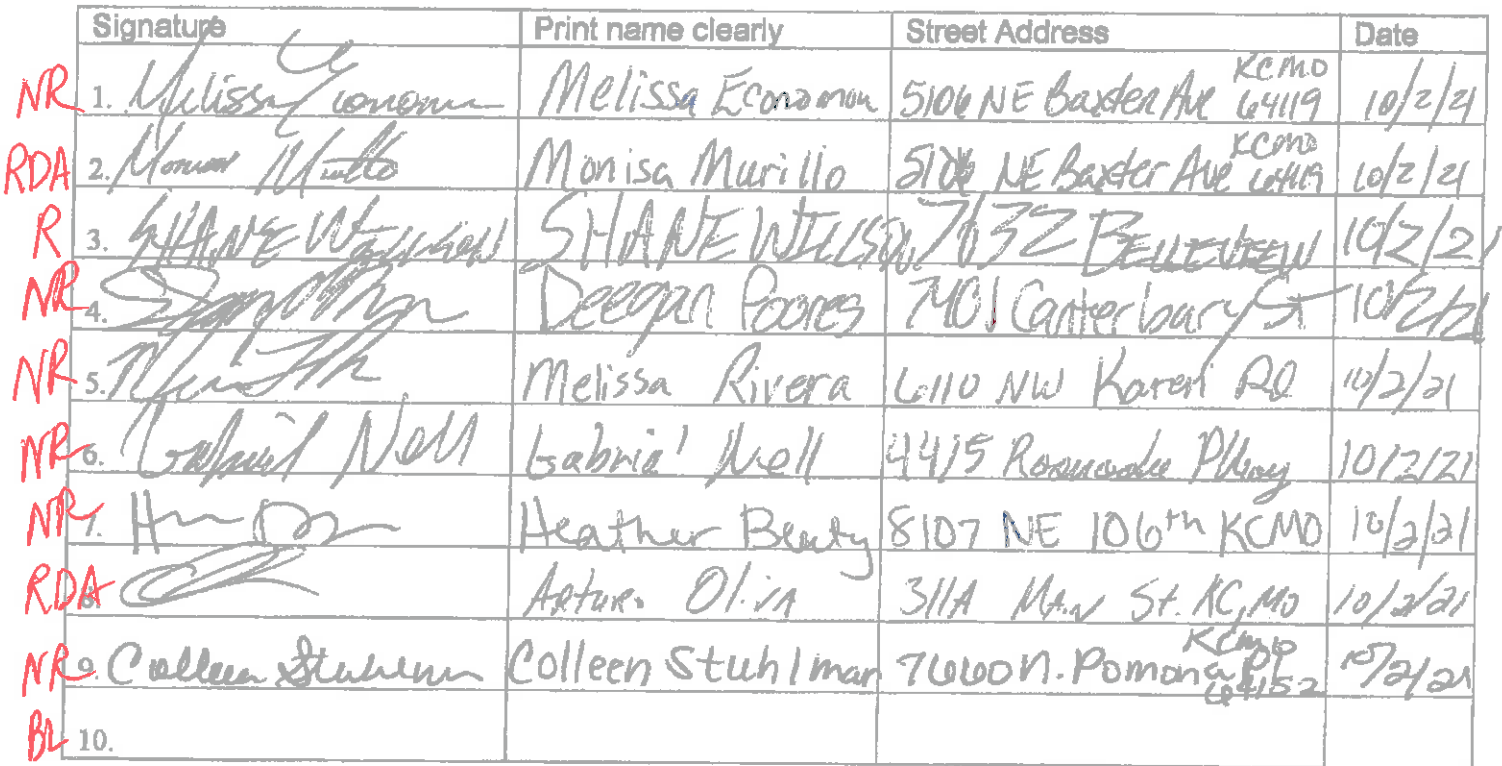 Signature Print name clearly Street Address Date
NR 1. Melissa Economou Melissa Economou 5106 NE Baxter Ave KCMO 64119 10/2/21
RDA 2. Monisa Murillo Monisa Murillo 5106 NE Baxter Ave KCMO 64119 10/2/21
R 3. SHANE WILLSON SHANE WILLSON 7632 BELLEVIEW 10/2/21
NR 4. Deegan Poores 7401 Canterbary St 10/2/21
NR 5. Melissa Rivera 6110 NW Karen Rd 10/2/21
NR 6. Gabriel Nell Gabriel Nell 4415 Pkwy 10/2/21
NR 7. Heather Beaty 8107 NE 106th KCMO 10/2/21
RDA 8. Arturo Oliva 311A Main St. KC, MO 10/2/21
NR 9. Colleen Stuhlman Colleen Stuhlman 7600 N. Pomona Pl KCMO 64152 10/2/21
BL 10.